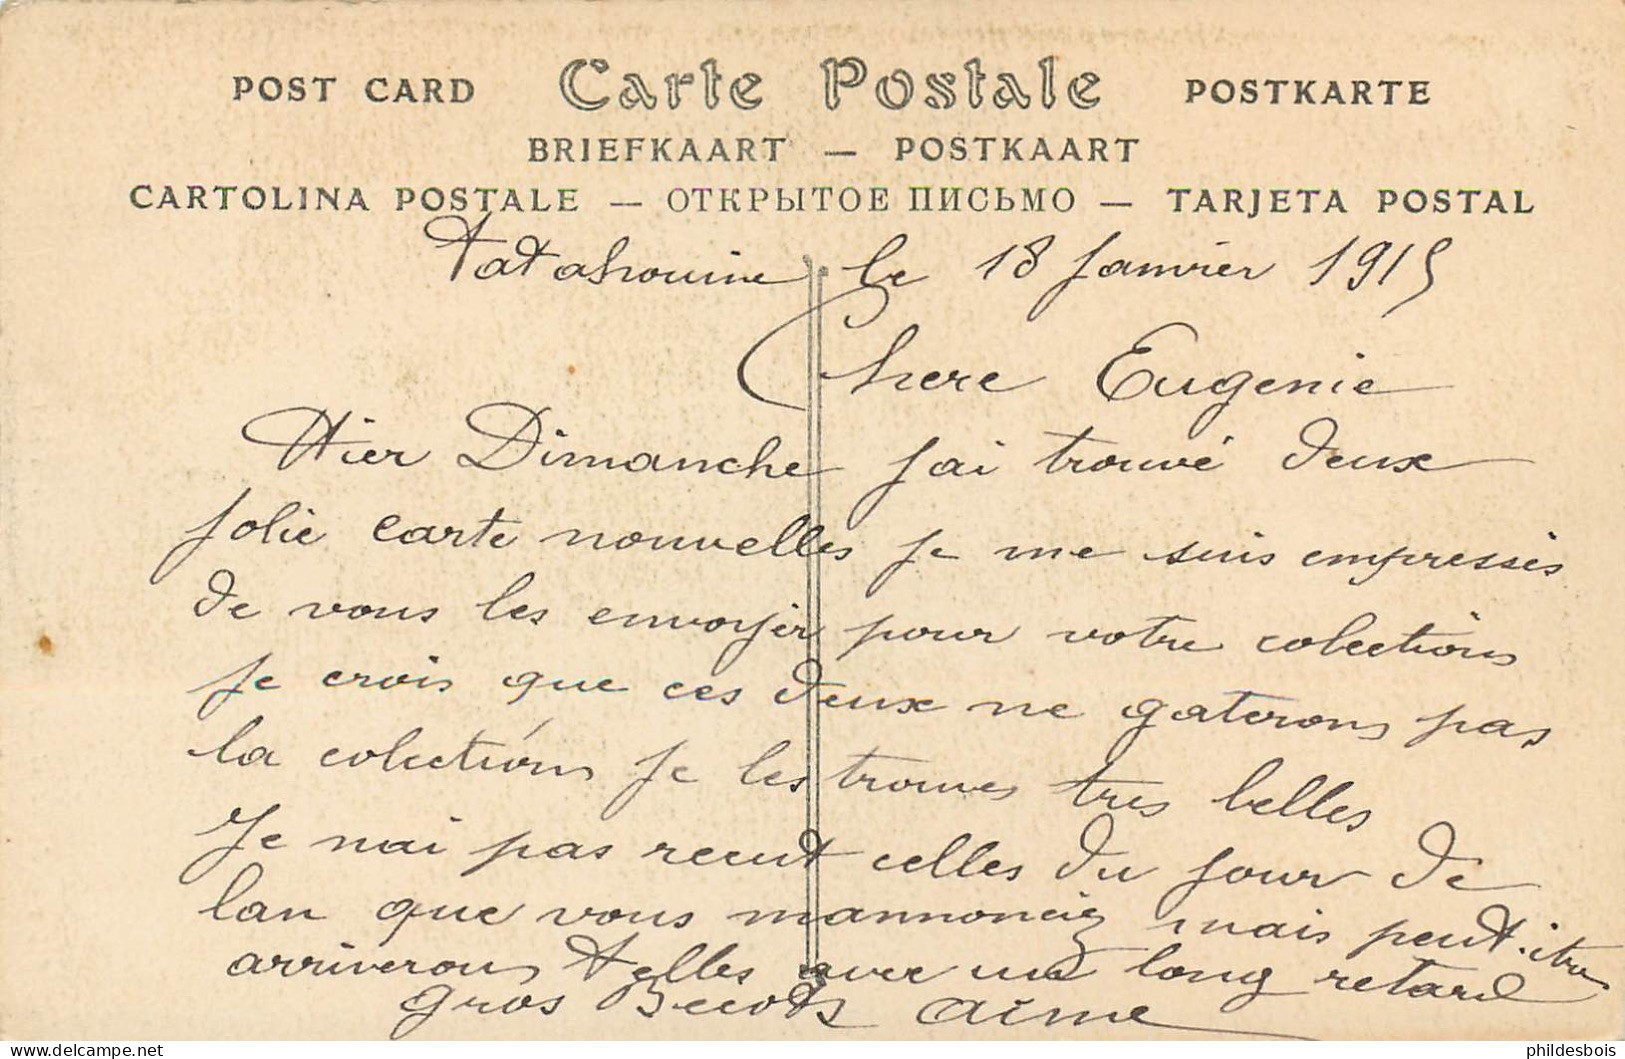 POST CARD Carte Postale POSTKARTE
BRIEFKAART — POSTKAART
CARTOLINA POSTALE — ОТКРЫТОЕ ПИСЬМО — TARJETA POSTAL
Tatahouine le 18 Janvier 1915
Chere Eugenie
Hier Dimanche Jai trouvé deux
Jolie carte nouvelles Je me suis empressés
de vous les envoyer pour votre colections
Je crois que ces deux ne gaterons pas
la colections Je les trouves tres belles
Je nai pas recut celles du Jour de
lan que vous mannonciez mais peut.itre
arriverons telles avec un long retard
Gros Becots Aime
phildesbois